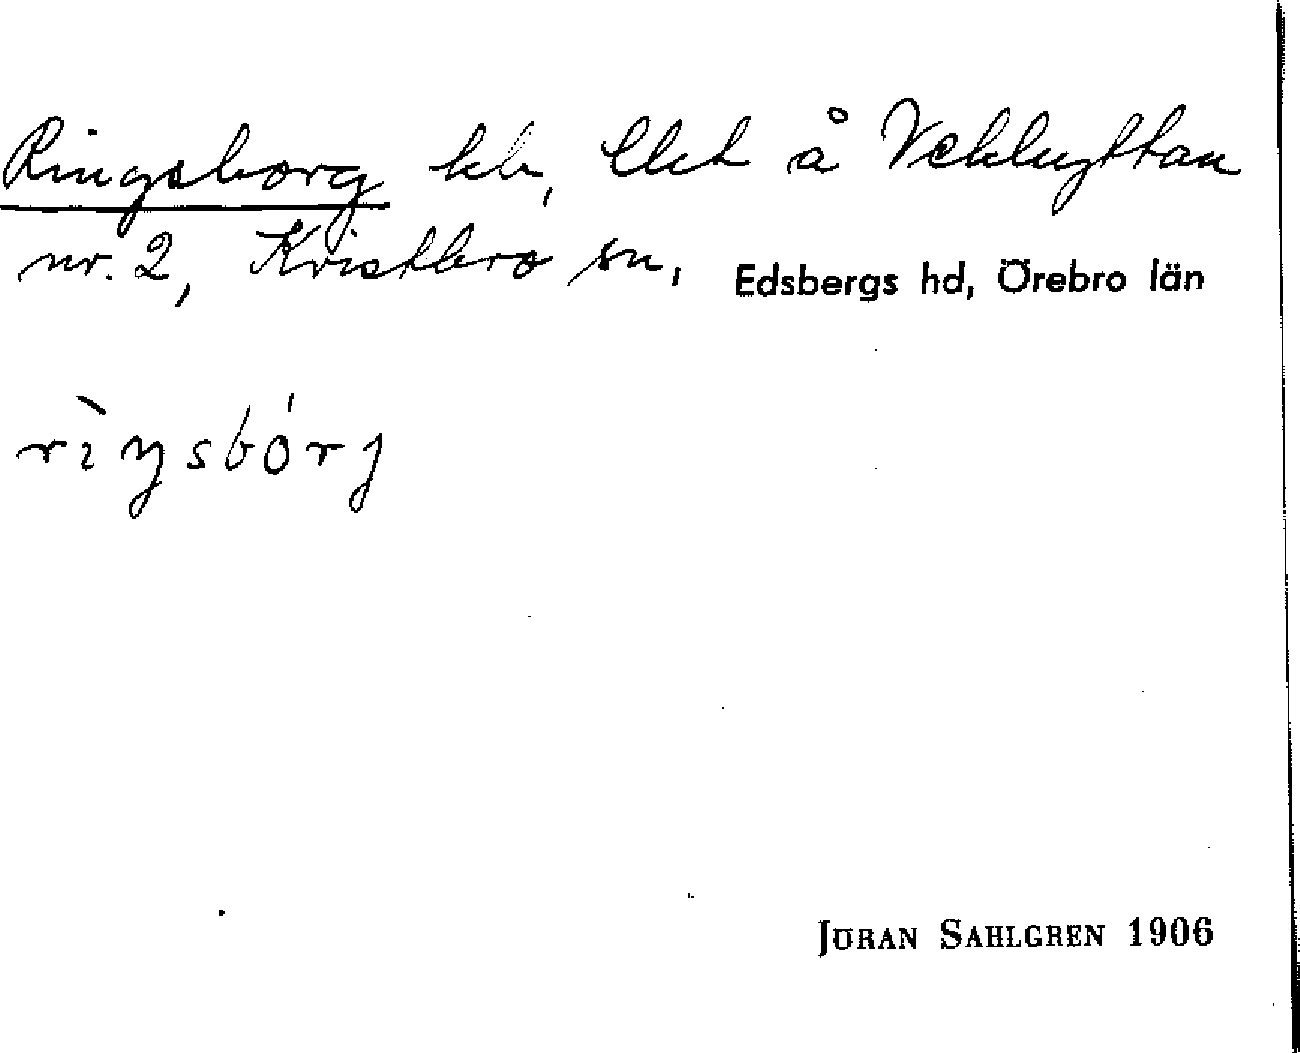 Ringsborg hb, Ekt å Vekhyttan
nr. 2, Kvistbro sn, Edsbergs hd, Örebro län
rìŋsbórj
JÖRAN SAHLGREN 1906